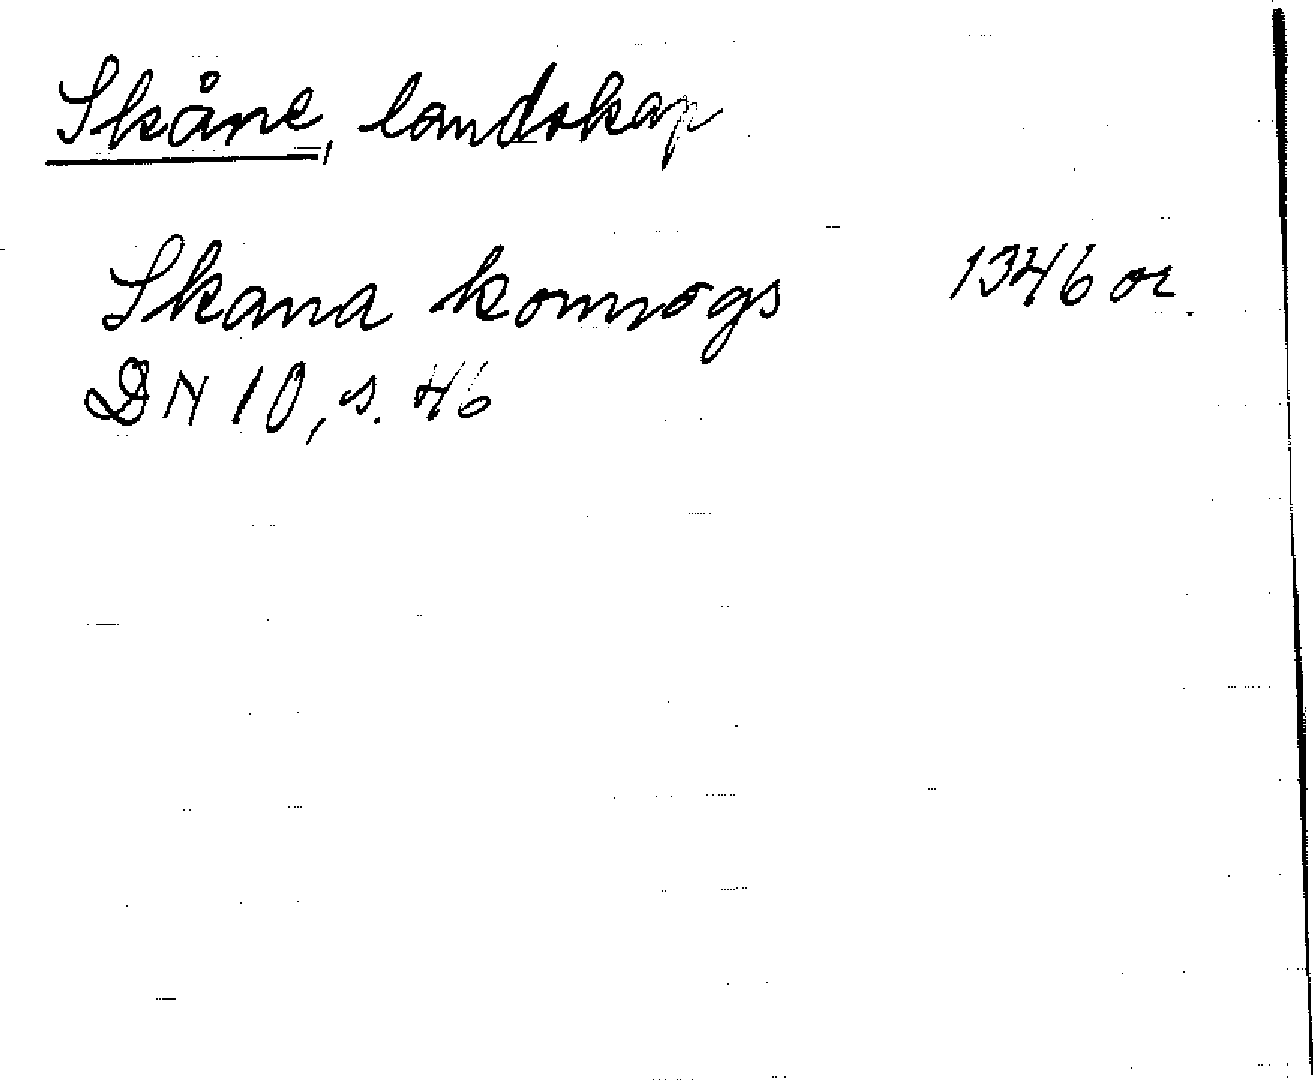 Skåne, landskap
Skana konnogs 1346 or.
DN 10, s. 46